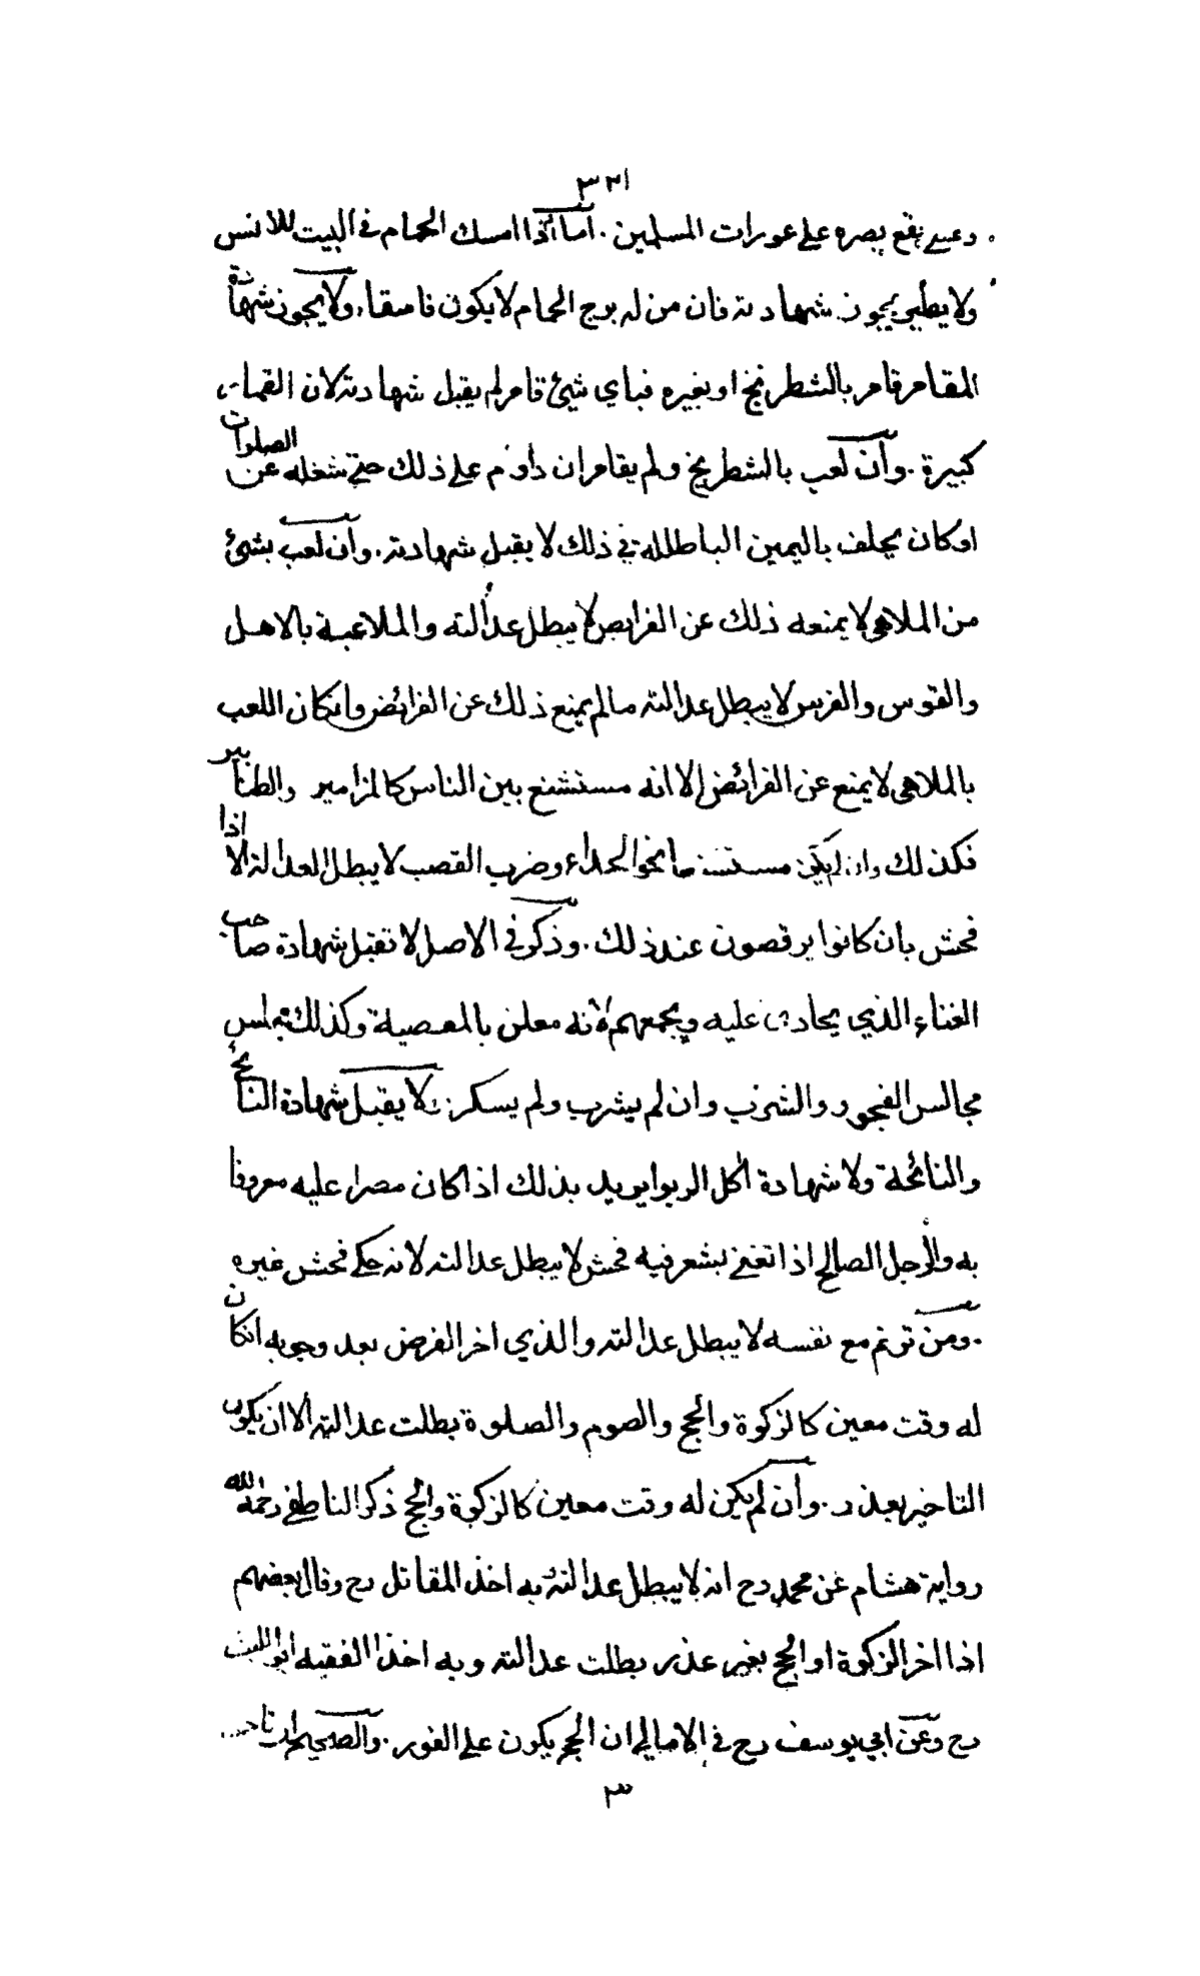 ٣٢١
وعسى يقع بصره على عورات المسلمين . اما اذا امسك الحمام في البيت للانس
ولا يطير يجوز شهادته فان من له برج الحمام لا يكون فاسقا . ولا يجوز شهادة
المقامر قامر بالشطرنج او بغيره فباي شيئ قامر لم يقبل شهادته لان القمار
كبيرة . وان لعب بالشطرنج ولم يقامر ان داوم على ذلك حتى شغله عن الصلوات
او كان يحلف باليمين الباطلة في ذلك لا يقبل شهادته . وان لعب بشئ
من الملاهي لا يمنعه ذلك عن الفرايض لا يبطل عدالته والملاعبة بالاهل
والقوس والفرس لا يبطل عدالته مالم يمنع ذلك عن الفرائض وان كان اللعب
بالملاهي لا يمنع عن الفرائض الا انه مستشنع بين الناس كالمزامير والطنابير
فكذلك وان لم يكن مستشنعا نحو الحداء وضرب القصب لا يبطل العدالة الا اذا
فحش بان كانوا يرقصون عند ذلك . وذكر في الاصل لا تقبل شهادة صاحب
الغناء الذي يخادن عليه ويجمعهم لانه معلن بالمعصية وكذلك من يجلس
مجالس الفجور والشرب وان لم يشرب ولم يسكر . لا يقبل شهادة النائح
والنائحة ولا شهادة اكل الربوا يريد بذلك اذا كان مصرا عليه معروفا
به والرجل الصالح اذا تغنى بشعر فيه فحش لا يبطل عدالته لانه حكى فحش غيره
. ومن ترنم مع نفسه لا يبطل عدالته والذي اخر الفرض بعد وجوبه ان كان
له وقت معين كالزكوة والحج والصوم والصلوة بطلت عدالته الا ان يكون
التاخير بعذر . وان لم يكن له وقت معين كالزكوة والحج ذكر الناطفي رحمه الله
رواية هشام عن محمد رح انه لا يبطل عدالته به اخذ المقاتل رح وقال بعضهم
اذا اخر الزكوة او الحج بغير عذر بطلت عدالته وبه اخذ الفقيه ابو الليث
رح وعن ابي يوسف رح في الامالي ان الحج يكون على الفور . والصحيح ان
٣